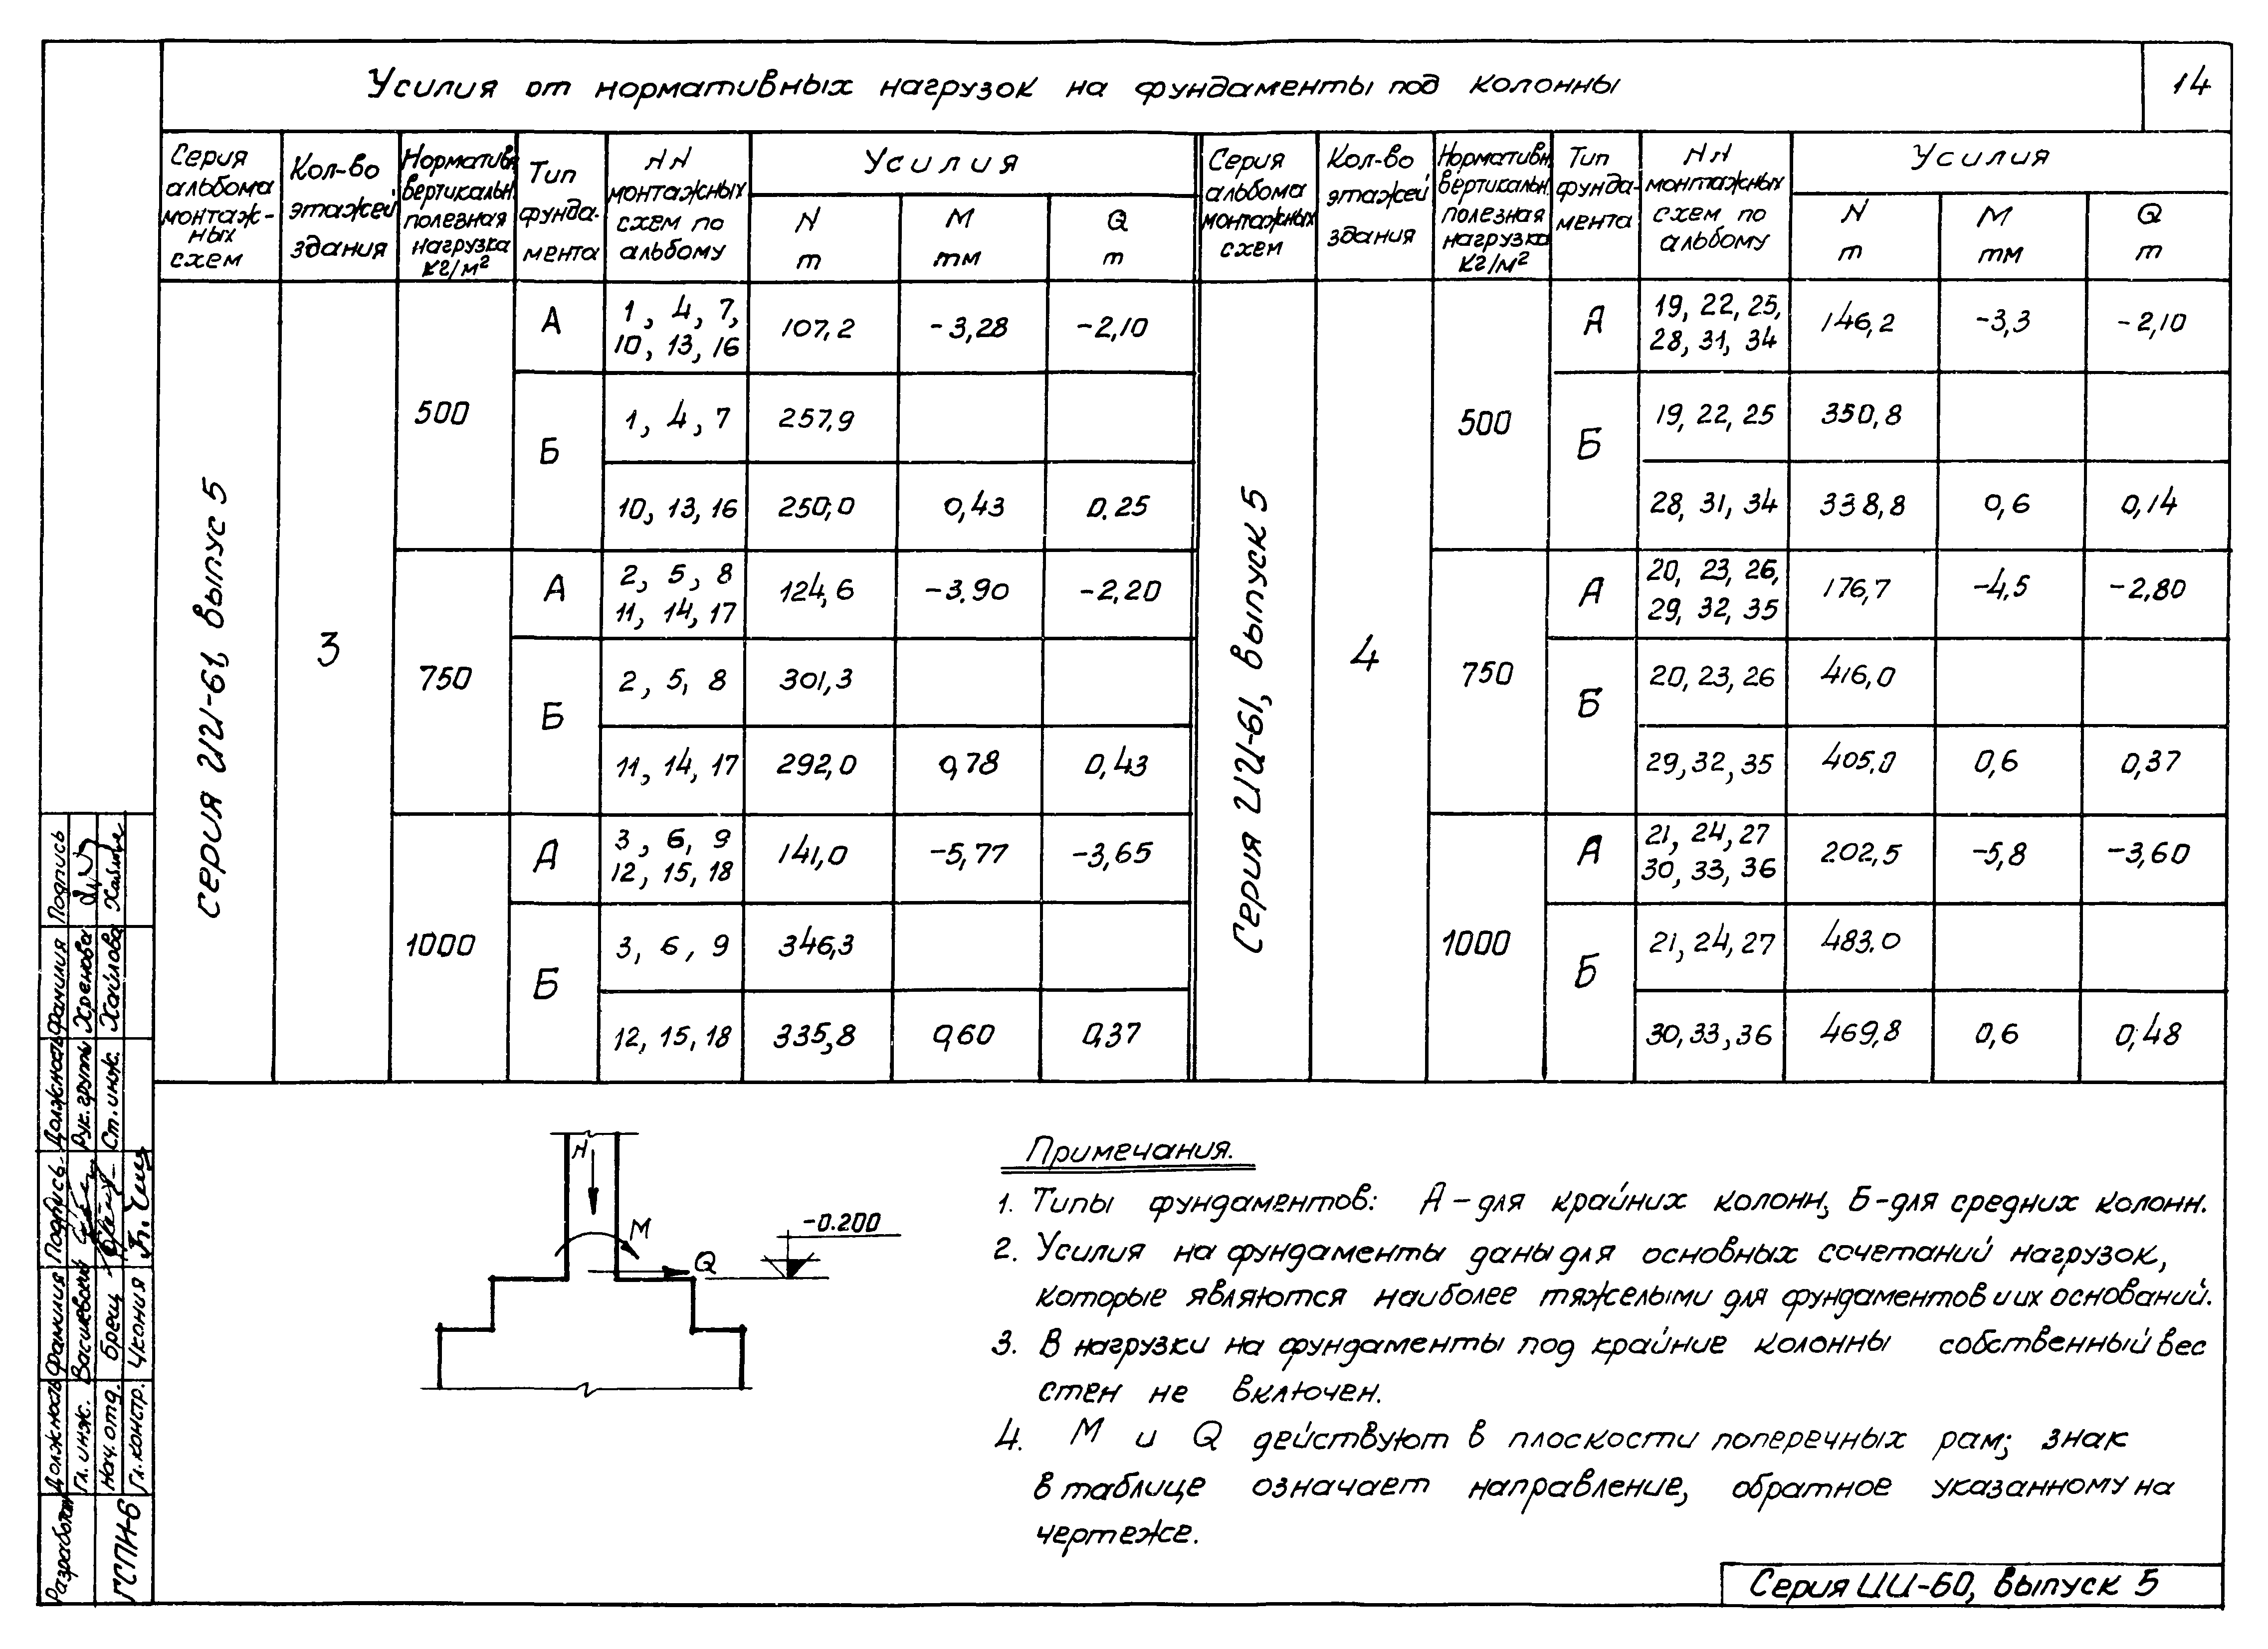 Усилия от нормативных нагрузок на фундаменты под колонны
14
Серия альбома монтаж-ных схем
Кол-во этажей здания
Нормативн вертикальн. полезная нагрузка кг/м²
Тип фунда-мента
NN монтажных схем по альбому
Усилия
N т
M тм
Q т
Серия альбома монтажных схем
Кол-во этажей здания
Нормативн. вертикальн. полезная нагрузка кг/м²
Тип фунда-мента
NN монтажных схем по альбому
Усилия
N т
M тм
Q т
серия ИИ-61, выпус 5
3
500
А
1, 4, 7,
10, 13, 16
107,2
-3,28
-2,10
Б
1, 4, 7
257,9
10, 13, 16
250,0
0,43
0.25
750
А
2, 5, 8
11, 14, 17
124,6
-3.90
-2,20
Б
2, 5, 8
301,3
11, 14, 17
292,0
0,78
0,43
1000
А
3, 6, 9
12, 15, 18
141,0
-5,77
-3,65
Б
3, 6, 9
346,3
12, 15, 18
335,8
0,60
0,37
Серия ИИ-61, выпуск 5
4
500
А
19, 22, 25,
28, 31, 34
146,2
-3,3
-2,10
Б
19, 22, 25
350,8
28, 31, 34
338,8
0,6
0,14
750
А
20, 23, 26,
29, 32, 35
176,7
-4,5
-2,80
Б
20, 23, 26
416,0
29, 32, 35
405,0
0,6
0,37
1000
А
21, 24, 27
30, 33, 36
202,5
-5,8
-3,60
Б
21, 24, 27
483.0
30, 33, 36
469,8
0,6
0,48
N
M
Q
-0.200
Примечания.
1. Типы фундаментов: А - для крайних колонн, Б - для средних колонн.
2. Усилия на фундаменты даны для основных сочетаний нагрузок,
которые являются наиболее тяжелыми для фундаментов и их оснований.
3. В нагрузки на фундаменты под крайние колонны собственный вес
стен не включен.
4. М и Q действуют в плоскости поперечных рам; знак
в таблице означает направление, обратное указанному на
чертеже.
Серия ИИ-60, выпуск 5
Разработан
ГСПИ-6
Должность Фамилия Подпись Должность Фамилия Подпись
Гл. инж. Васильевский Рук. группы Хренова
Нач. отд. Бреец Ст. инж. Хайлова
Гл. констр. Чкония